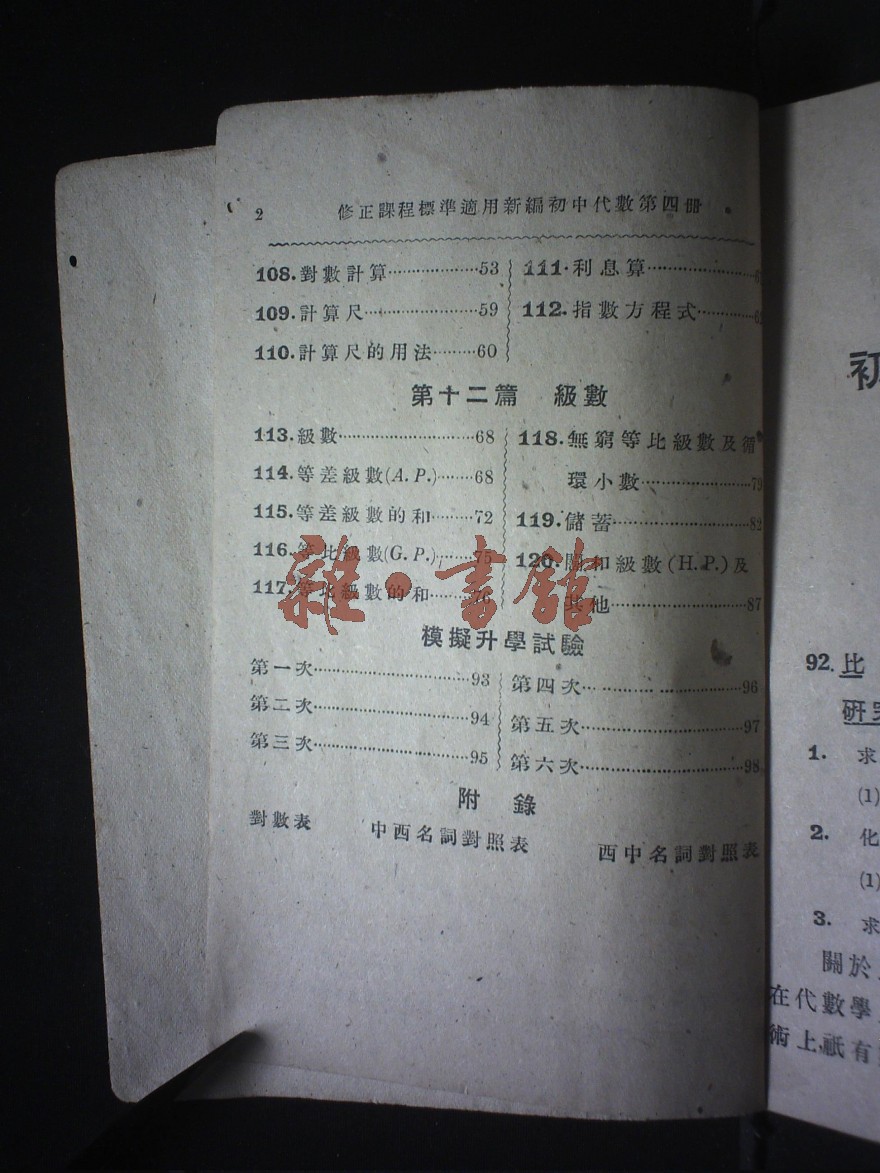 2 修正課程標準適用新編初中代數第四冊
108.對數計算………………53
109.計算尺…………………59
110.計算尺的用法………60
111.利息算…………………
112.指數方程式…………
第十二篇 級數
113.級數……………………68
114.等差級數(A.P.)……68
115.等差級數的和………72
116.等比級數(G.P.)……75
117.等比級數的和………76
118.無窮等比級數及循
環小數…………………79
119.儲蓄……………………82
120.調和級數(H.P.)及
其他……………………87
模擬升學試驗
第一次……………………93
第二次……………………94
第三次……………………95
第四次……………………96
第五次……………………97
第六次……………………98
附錄
對數表 中西名詞對照表 西中名詞對照表
雜·書館
初
92.比
研究
1. 求
(1)
2. 化
(1)
3. 求
關於
在代數學
術上祇有